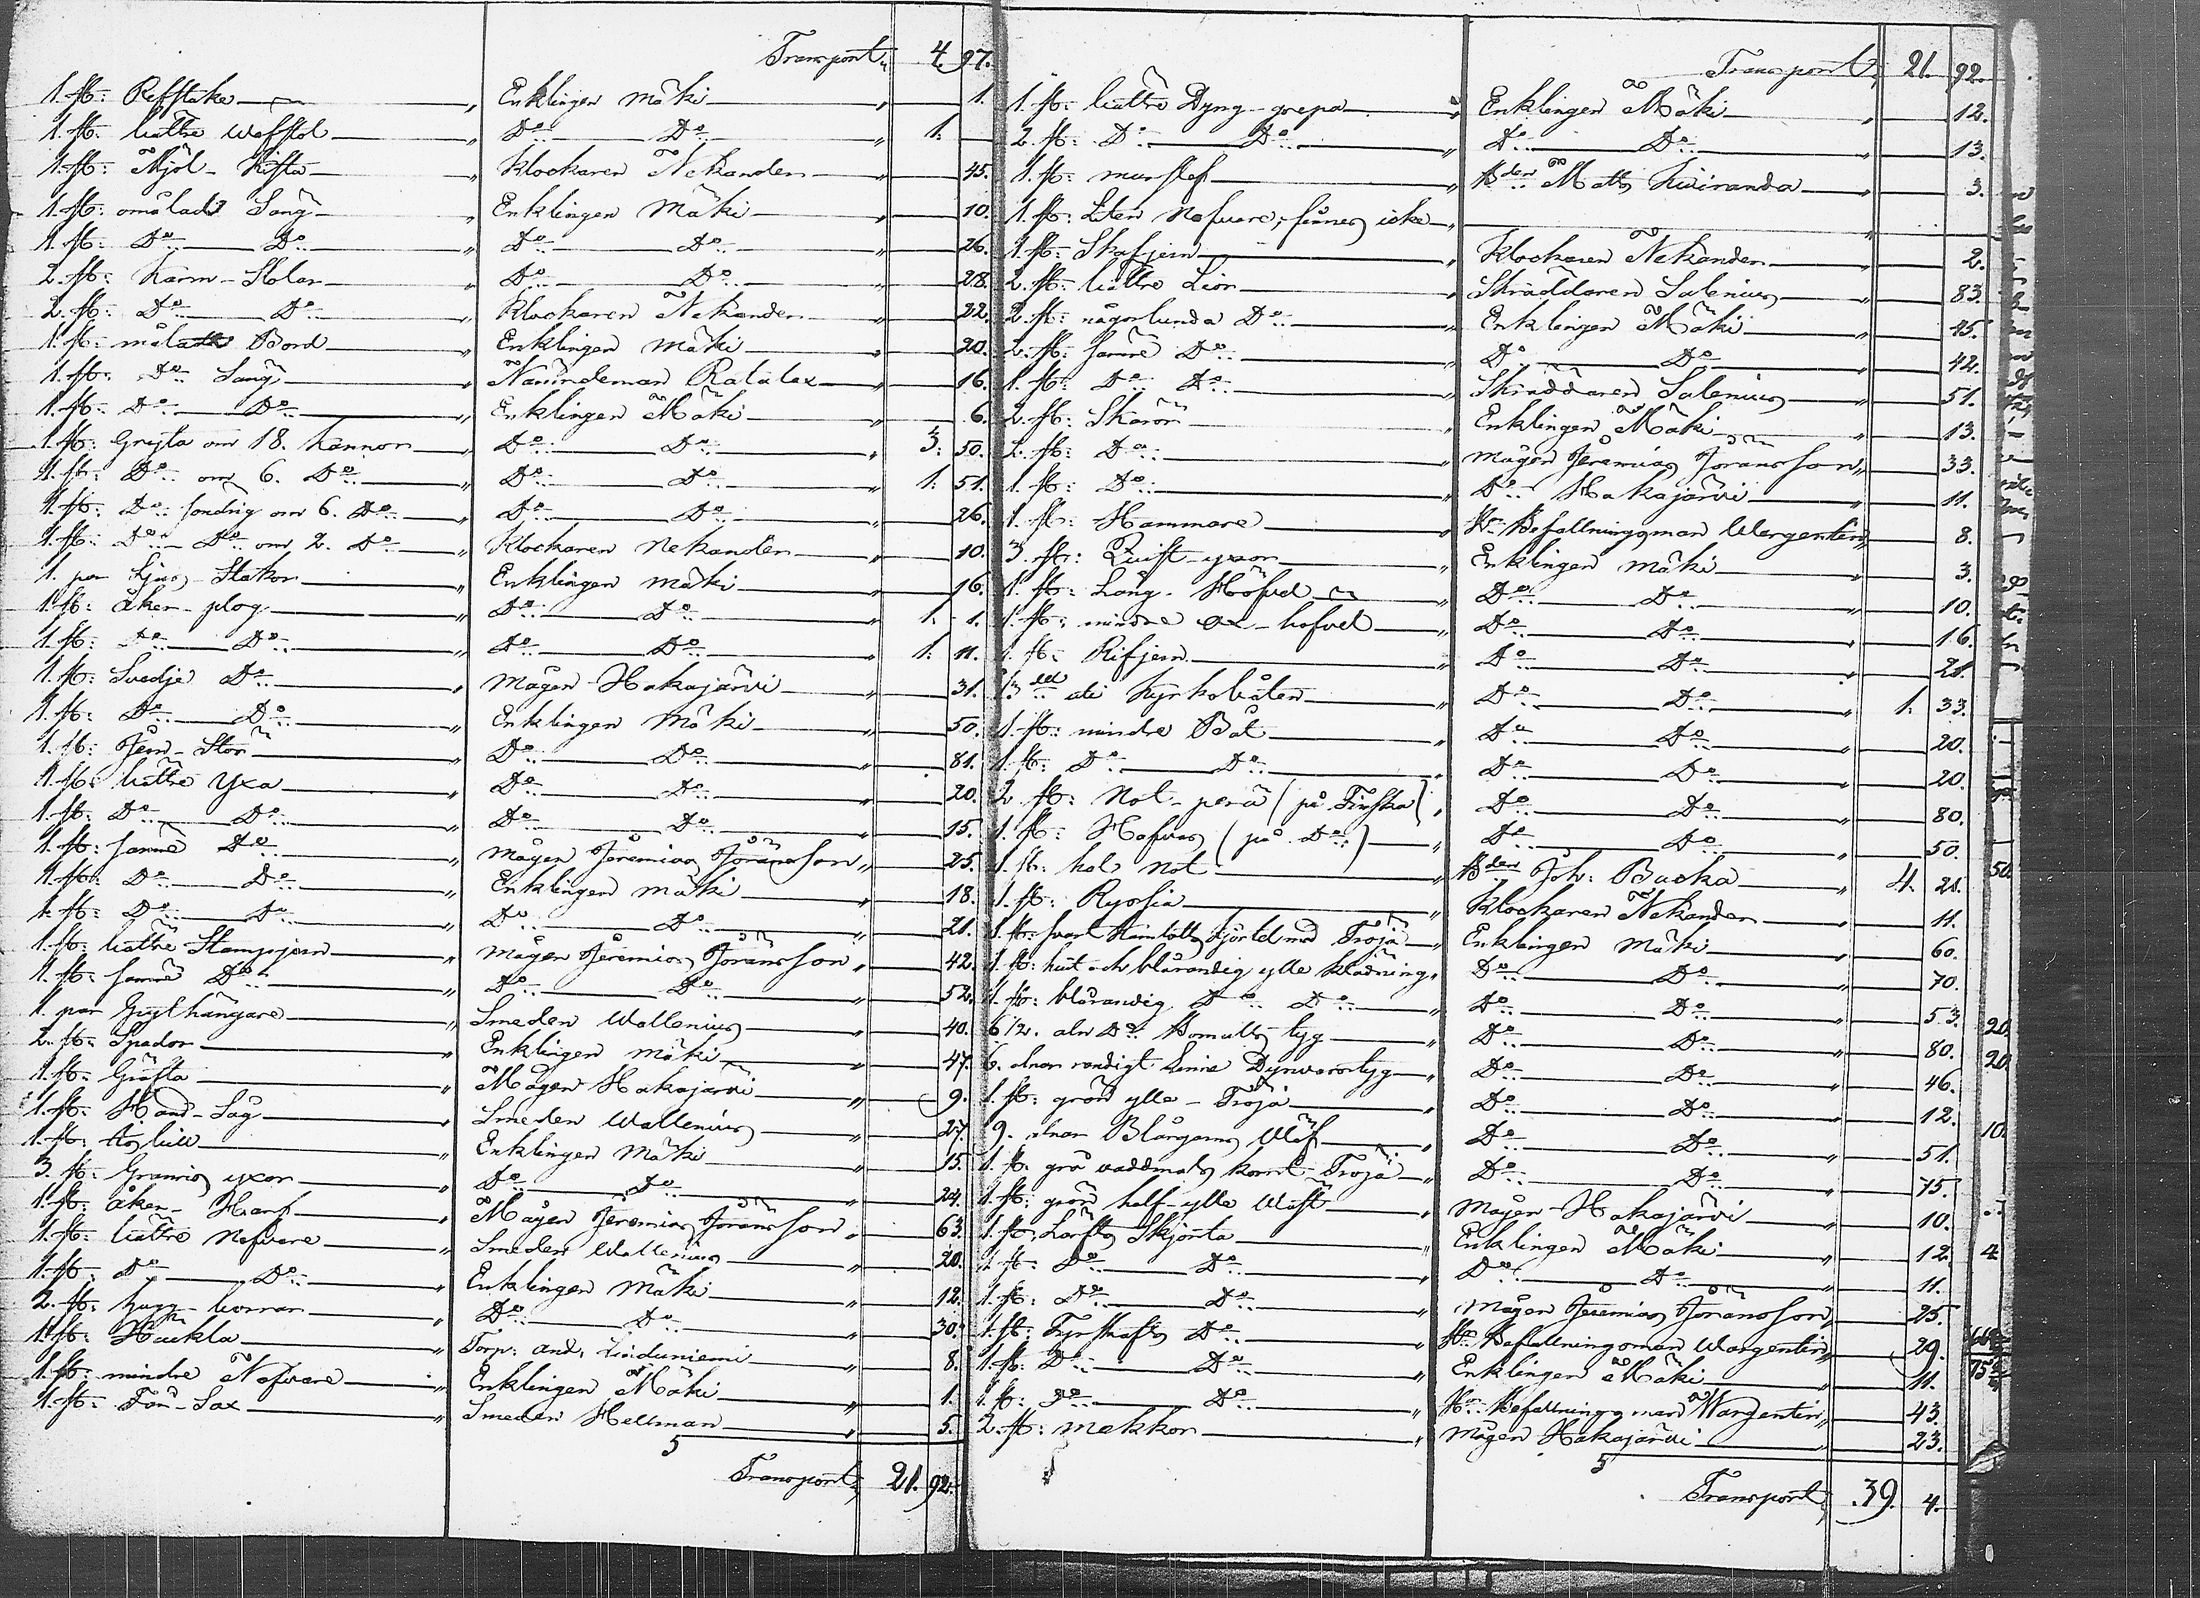 Transport, 4. 97.
1. st: Refstake " Enklingen Mäki " 1.
1. st: bättre Wäfstol " Do Do " 1.
1. st: Mjöl-Kista " Klockaren Nekanden " 45.
1. st: omålad Säng " Enklingen Mäki " 10.
1. st: Do Do " Do Do " 26.
2. st: Karm-Stolar " Do Do " 28.
2. st: Do Do " Klockaren Nekanden " 22.
1. st: målat Bord " Enklingen Mäki " 20.
1. st: Do Säng " Nämndeman Ralalax " 16.
1. st: Do Do " Enklingen Mäki " 6.
1. st: Gryta om 18. kannor " Do Do " 3. 50.
1. st: Do om 6. Do " Do Do " 1. 51.
1. st: Do söndrig om 6. Do " Do Do " 26.
1. st: Do Do om 2. Do " Klockaren Nekanden " 10.
1. par Ljus-Stakar " Enklingen Mäki " 16.
1. st: åker-plog " Do Do " 1. 1.
1. st: Do Do " Do Do " 1. 11.
1. st: Svedje Do " Mågen Hakajärvi " 31.
1. st: Do Do " Enklingen Mäki " 50.
1. st: Jern-Stör " Do Do " 81.
1. st: bättre Yxa " Do Do " 20.
1. st: Do Do " Do Do " 15.
1. st: sämre Do " Mågen Jeremias Jöransson " 25.
1. st: Do Do " Enklingen Mäki " 18.
1. st: Do Do " Do Do " 21.
1. st: bättre Stampjern " Mågen Jeremias Jöransson " 42.
1. st: sämre Do " Do Do " 52.
1. par Grythängare " Smeden Wallenius " 40.
2. st: Spador " Enklingen Mäki " 47.
1. st: Gräfta " Mågen Hakajärvi " 9.
1. st: Hand-Såg " Smeden Wallenius " 27.
1. st: " Enklingen Mäki " 15.
3. st: yxor " Do Do " 24.
1. st: åker-Harf " Mågen Jeremias Jöransson " 63.
1. st: bättre Nafvare " Smeden Wallenius " 20.
1. st: Do Do " Enklingen Mäki " 12.
2. st: hugg-borrar " Do Do " 30.
1. st: Häckla " Torp: And: Linduniemi " 8.
1. st: mindre Nafvare " Enklingen Mäki " 1.
1. st: Sax " Smeden Hellman " 5.
5
Transport, 21. 92.
Transport, 21. 92.
1. st: bättre Dyng-grepa " Enklingen Mäki " 12.
2. st: Do Do " Do Do " 13.
1. st: murslef " Bden Matts Kuiranda " 3.
1. st: Liten Nafvare, finnes icke "
1. st: Skafjern " Klockaren Nekanden " 2.
2. st: bättre Liör " Skräddaren Salenius " 83.
2. st: någorlunda Do " Enklingen Mäki " 45.
2. st: sämre Do " Do Do " 42.
1. st: Do Do " Skräddaren Salenius " 51.
2. st: Skäror " Enklingen Mäki " 13.
2. st: Do " Mågen Jeremias Jöransson " 33.
1. st: Do " Do Hakajärvi " 11.
1. st: Hammare " Hr Befallningsman Wargentin " 8.
3. st: Quist-yxor " Enklingen Mäki " 3.
1. st: Lång-Höfvel " Do Do " 10.
1. st: mindre -hofvel " Do Do " 16.
1. st: Rifjern " Do Do " 21.
1/3 del uti Kyrkobåten " Do Do " 1. 33.
1. st: mindre Båt " Do Do " 20.
1. st: Do Do " Do Do " 20.
2. st: Not-perä (på Finska) " Do Do " 80.
1. st: Hafvas (på Do) " Do Do " 50.
1. st: hel Not " Bden Joh: Backa " 4. 21.
1. st: Ryssia " Klockaren Nekanden " 11.
1. st: svart kjortel med Tröja " Enklingen Mäki " 60.
1. st: hvit och blårandig ylle klädning " Do Do " 70.
1. st: blårandig Do Do " Do Do " 53.
6 1/2. aln Do Bomulls tyg " Do Do " 80.
6. alnar randigt Linne Dynvarstyg " Do Do " 46.
1. st: grön ylle-Tröja " Do Do " 12.
9. alnar Blångarns Wäf " Do Do " 51.
1. st: grå vadmals Tröja " Do Do " 75.
1. st: grön half-ylle Wäst " Mågen Hakajärvi " 10.
1. st: Lärfts Skjorta " Enklingen Mäki " 12.
1. st: Do Do " Do Do " 11.
1. st: Do Do " Mågen Jeremias Jöransson " 25.
1. st: Fyrskafts Do " Hr Befallningsman Wargentin " 29.
1. st: Do Do " Enklingen Mäki " 11.
1. st: Do Do " Hr Befallningsman Wargentin " 43.
2. st: mekkor " Mågen Hakajärvi " 23.
5
Transport, 39. 4.